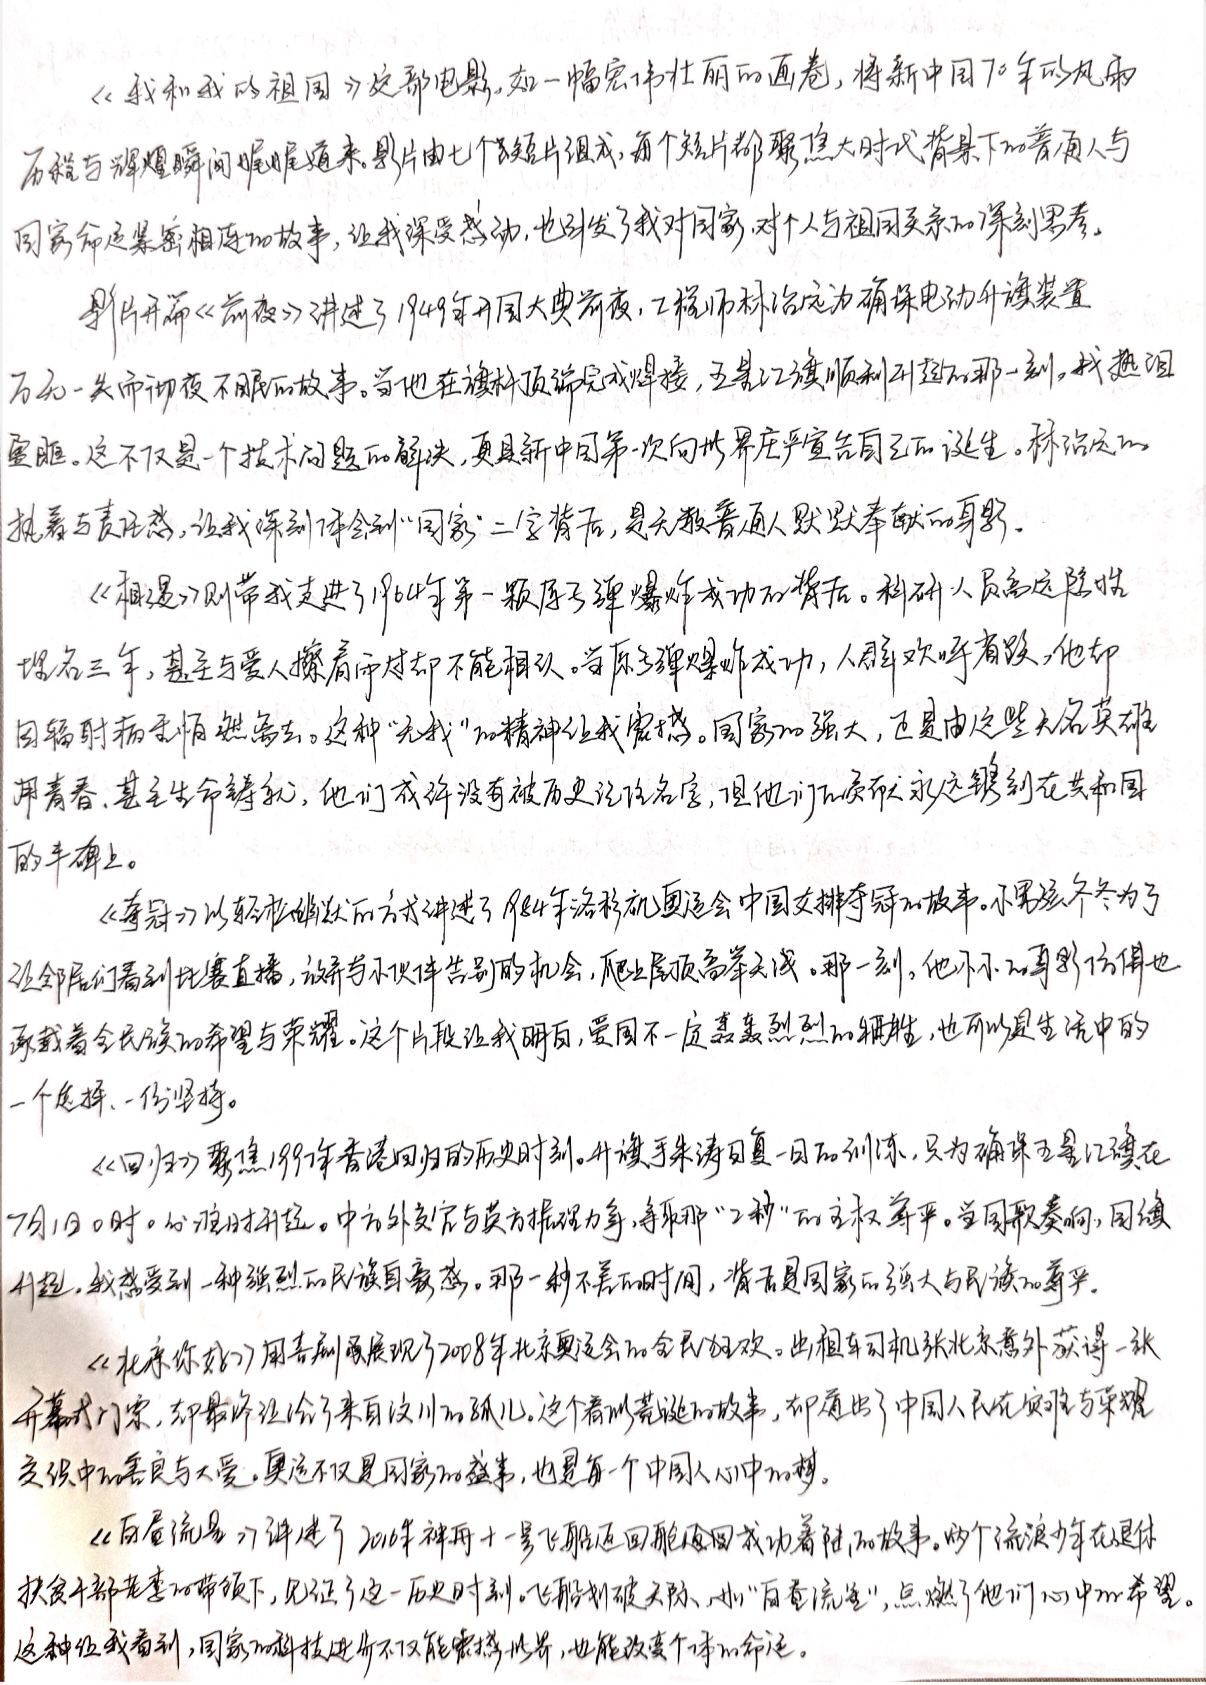 《我和我的祖国》这部电影,如一幅宏伟壮丽的画卷,将新中国70年的风雨
历程与辉煌瞬间娓娓道来。影片由七个短片组成,每个短片都聚焦大时代背景下的普通人与
国家命运紧密相连的故事,让我深受感动,也引发了我对国家、对个人与祖国关系的深刻思考。
影片开篇《前夜》讲述了1949年开国大典前夜,工程师林治远为确保电动升旗装置
万无一失而彻夜不眠的故事。当他在旗杆顶端完成焊接,五星红旗顺利升起的那一刻,我热泪
盈眶。这不仅是一个技术问题的解决,更是新中国第一次向世界庄严宣告自己的诞生。林治远的
执着与责任感,让我深刻体会到“国家”二字背后,是无数普通人默默奉献的身影。
《相遇》则带我走进了1964年第一颗原子弹爆炸成功的背后。科研人员高远隐姓
埋名三年,甚至与爱人擦肩而过却不能相认。当原子弹爆炸成功,人群欢呼雀跃,他却
因辐射病重悄然离去。这种“无我”的精神让我震撼。国家的强大,正是由这些无名英雄
用青春、甚至生命铸就,他们或许没有被历史记住名字,但他们的贡献永远镌刻在共和国
的丰碑上。
《夺冠》以轻松幽默的方式讲述了1984年洛杉矶奥运会中国女排夺冠的故事。小男孩冬冬为了
让邻居们看到比赛直播,放弃与小伙伴告别的机会,爬上屋顶高举天线。那一刻,他小小的身影仿佛也
承载着全民族的希望与荣耀。这个片段让我明白,爱国不一定轰轰烈烈的牺牲,也可以是生活中的
一个选择、一份坚持。
《回归》聚焦1997年香港回归的历史时刻。升旗手朱涛日复一日的训练,只为确保五星红旗在
7月1日0时0分准时升起。中方外交官与英方据理力争,争取那“2秒”的主权尊严。当国歌奏响,国旗
升起,我感受到一种强烈的民族自豪感。那一秒不差的时间,背后是国家的强大与民族的尊严。
《北京你好》用喜剧展现了2008年北京奥运会的全民狂欢。出租车司机张北京意外获得一张
开幕式门票,却最终让给了来自汶川的孤儿。这个看似荒诞的故事,却道出了中国人民在灾难与荣耀
交织中的善良与大爱。奥运不仅是国家的盛事,也是每一个中国人心中的梦。
《白昼流星》讲述了2016年神舟十一号飞船返回舱返回成功着陆的故事。两个流浪少年在退休
扶贫干部老李的带领下,见证了这一历史时刻。飞船划破天际、如“白昼流星”,点燃了他们心中的希望。
这种让我看到,国家的科技进步不仅能震撼世界,也能改变个体的命运。